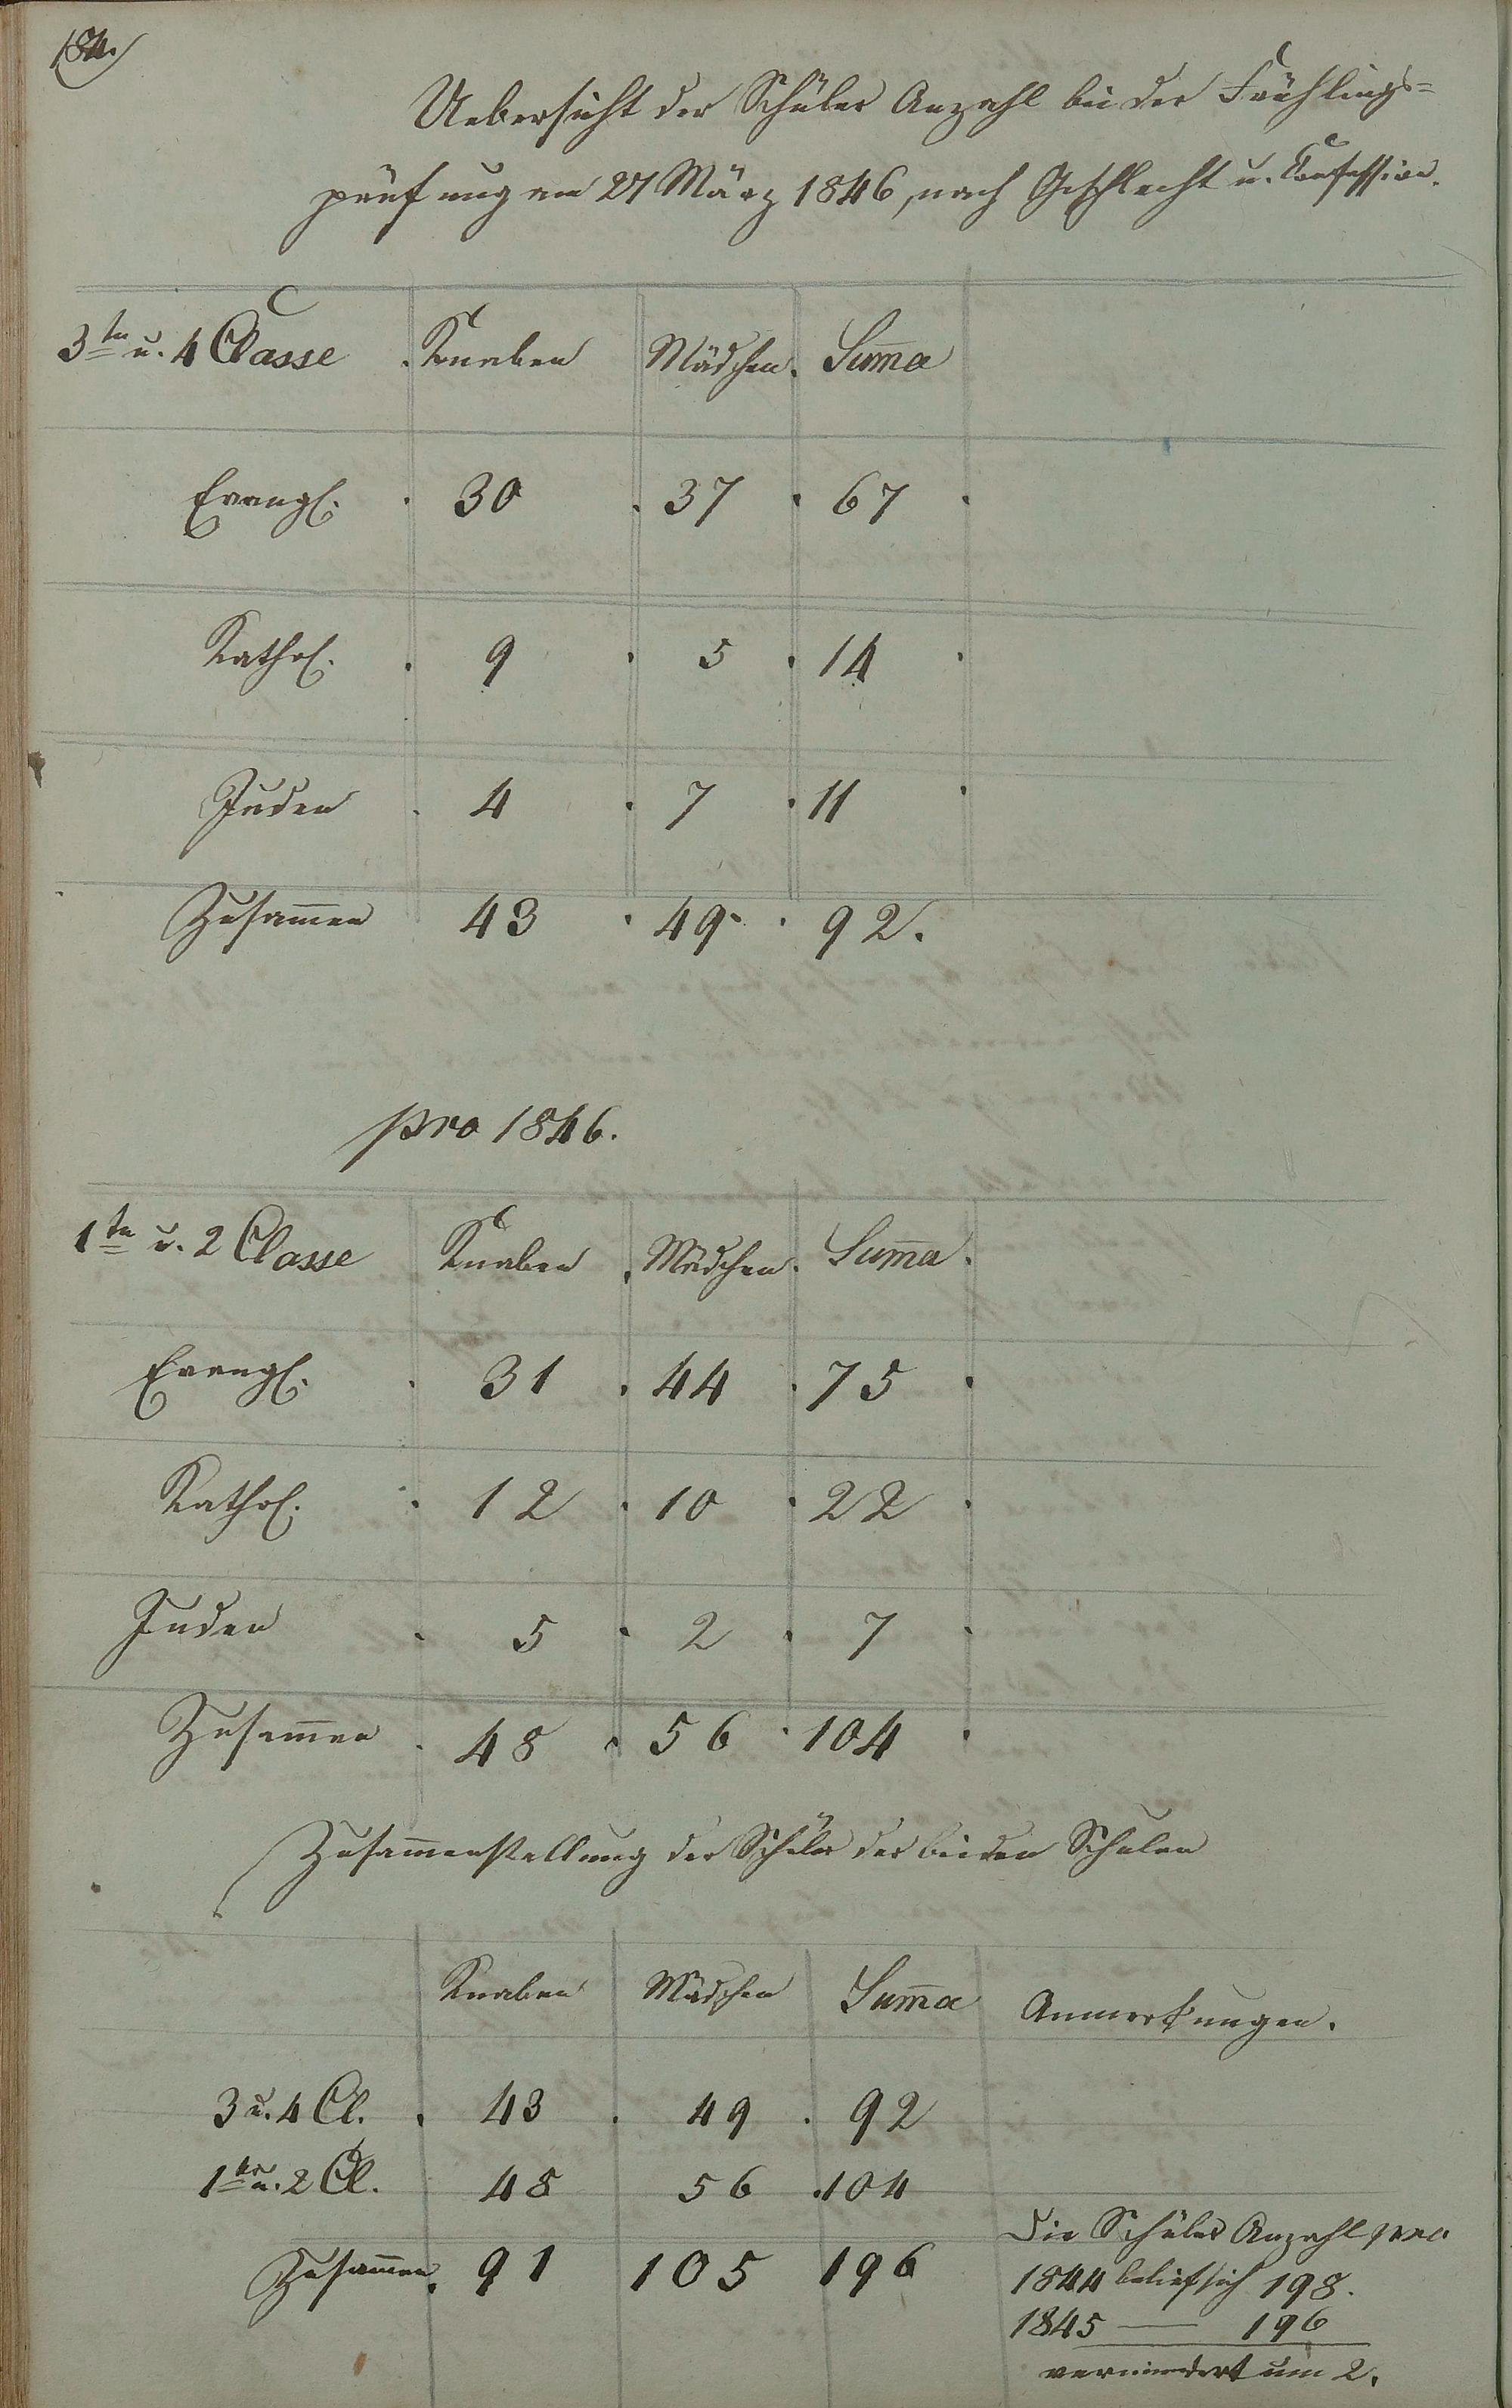 184.
Uebersicht der Schüler Anzahl bei der Frühlings=
prüfung am 27 März 1846, nach Geschlecht u. Confession.
3te u. 4 Classe Knaben Mädchen. Sum̄a
Evangl. 30 37 67
Kathol. 9 5 14
Juden 4 7 11
Zusam̄en 43 49. 92.
pro 1846.
1te u. 2 Classe Knaben Mädchen. Sum̄a.
Evangl. 31 44 75
Kathol. 12 10 22
Juden 5 2 7
Zusam̄en 48 56 104
Zusam̄enstellung der Schüler der beiden Schulen
Knaben Mädchen Sum̄a Anmerkungen.
3 u. 4 Cl. 43 49 92
1te u. 2 Cl. 48 56 104
Zusam̄en. 91 105 196
Die Schüler Anzahl pro
1844 belief sich 198.
1845 — 196
vermindert um 2.